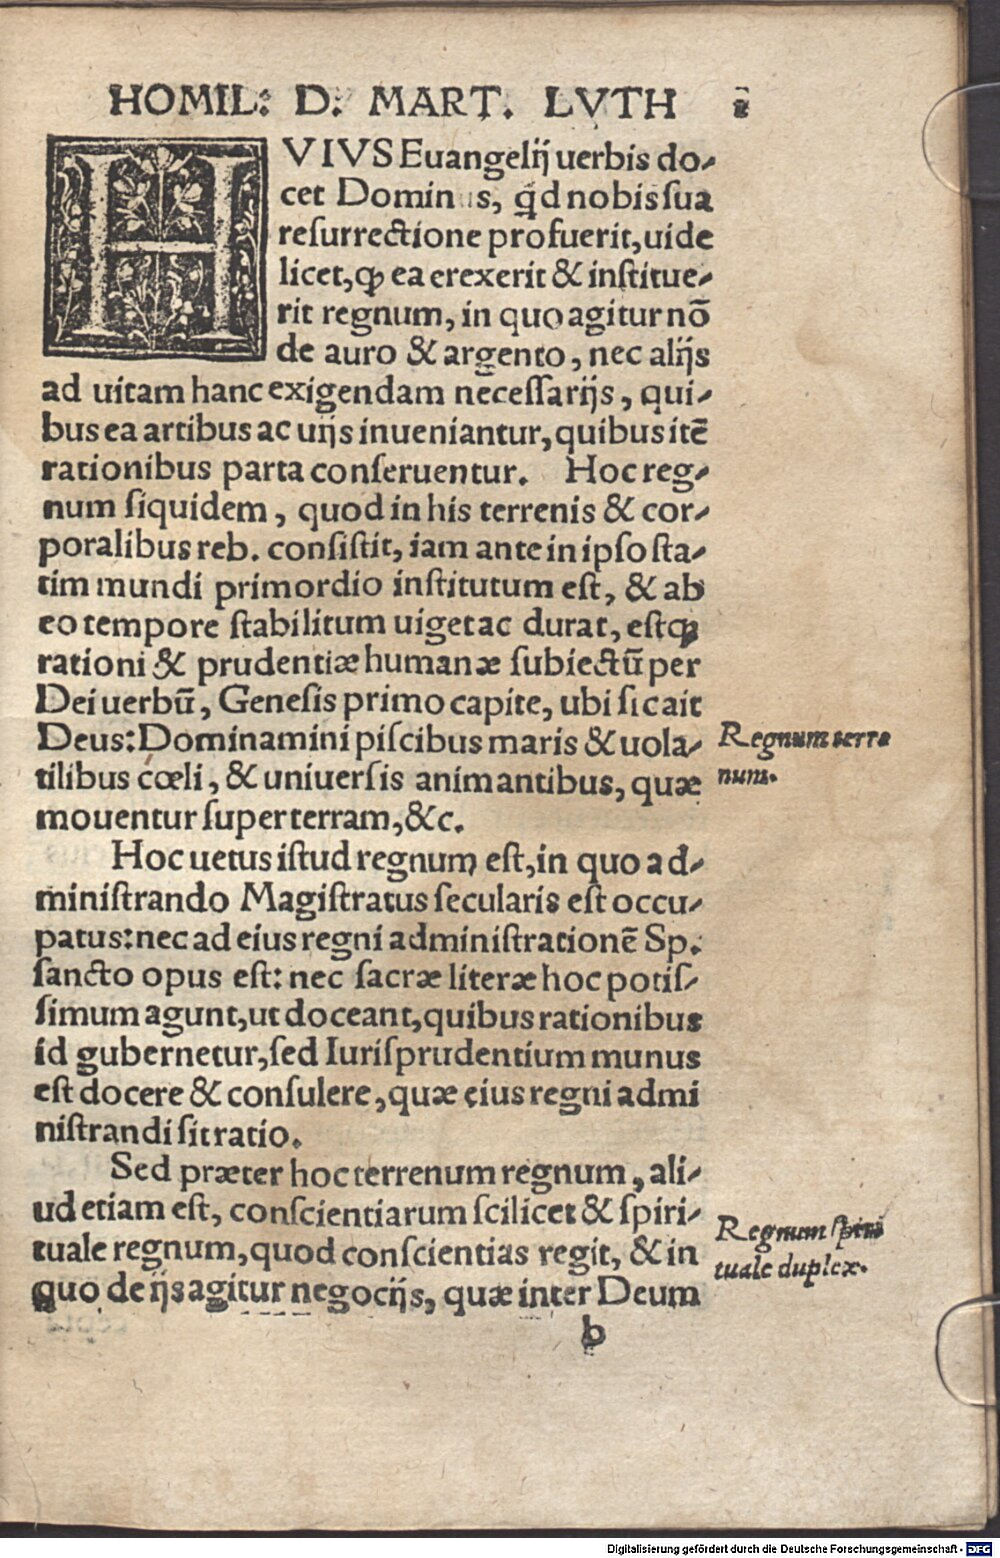 HOMIL: D. MART. LVTH
HVIVS Euangelij uerbis do-
cet Dominus, qđ nobis sua
resurrectione profuerit, uide
licet, ꝙ ea erexerit & institue-
rit regnum, in quo agitur nō
de auro & argento, nec alijs
ad uitam hanc exigendam necessarijs, qui-
bus ea artibus ac uijs inueniantur, quibus itē
rationibus parta conseruentur. Hoc reg-
num siquidem, quod in his terrenis & cor-
poralibus reb. consistit, iam ante in ipso sta-
tim mundi primordio institutum est, & ab
eo tempore stabilitum uiget ac durat, estq́ꝫ
rationi & prudentiæ humanæ subiectū per
Dei uerbū, Genesis primo capite, ubi sic ait
Deus: Dominamini piscibus maris & uola-
tilibus cœli, & uniuersis animantibus, quæ
mouentur super terram, &c.
Regnum terre
num.
Hoc uetus istud regnum est, in quo ad-
ministrando Magistratus secularis est occu-
patus: nec ad eius regni administrationē Sp.
sancto opus est: nec sacræ literæ hoc potis-
simum agunt, ut doceant, quibus rationibus
id gubernetur, sed Iurisprudentium munus
est docere & consulere, quæ eius regni admi
nistrandi sit ratio.
Sed præter hoc terrenum regnum, ali-
ud etiam est, conscientiarum scilicet & spiri-
tuale regnum, quod conscientias regit, & in
quo de ijs agitur negocijs, quæ inter Deum
Regnum spiri
tuale duplex.
b
Digitalisierung gefördert durch die Deutsche Forschungsgemeinschaft - DFG